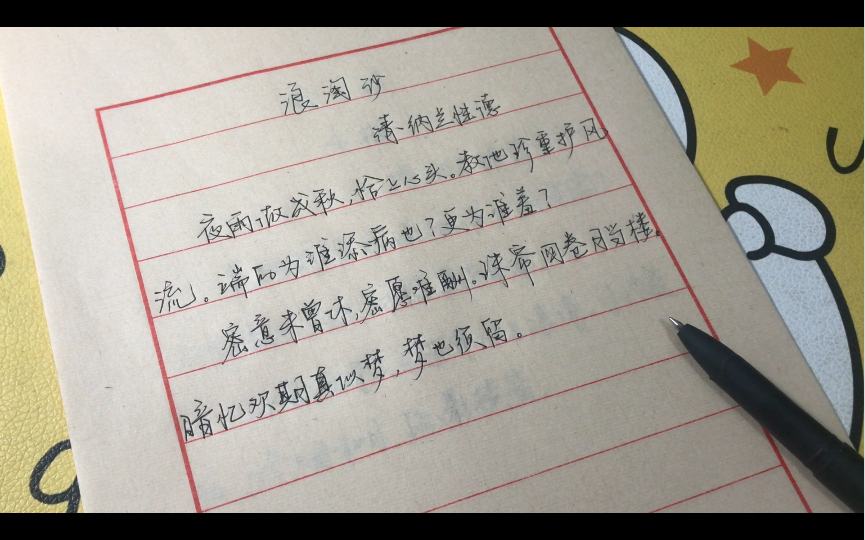 浪淘沙
清·纳兰性德
夜雨做成秋,恰上心头。教他珍重护风
流。端的为谁添病也?更为谁羞?
密意未曾休,密愿难酬。珠帘四卷月当楼。
暗忆欢期真似梦,梦也须留。